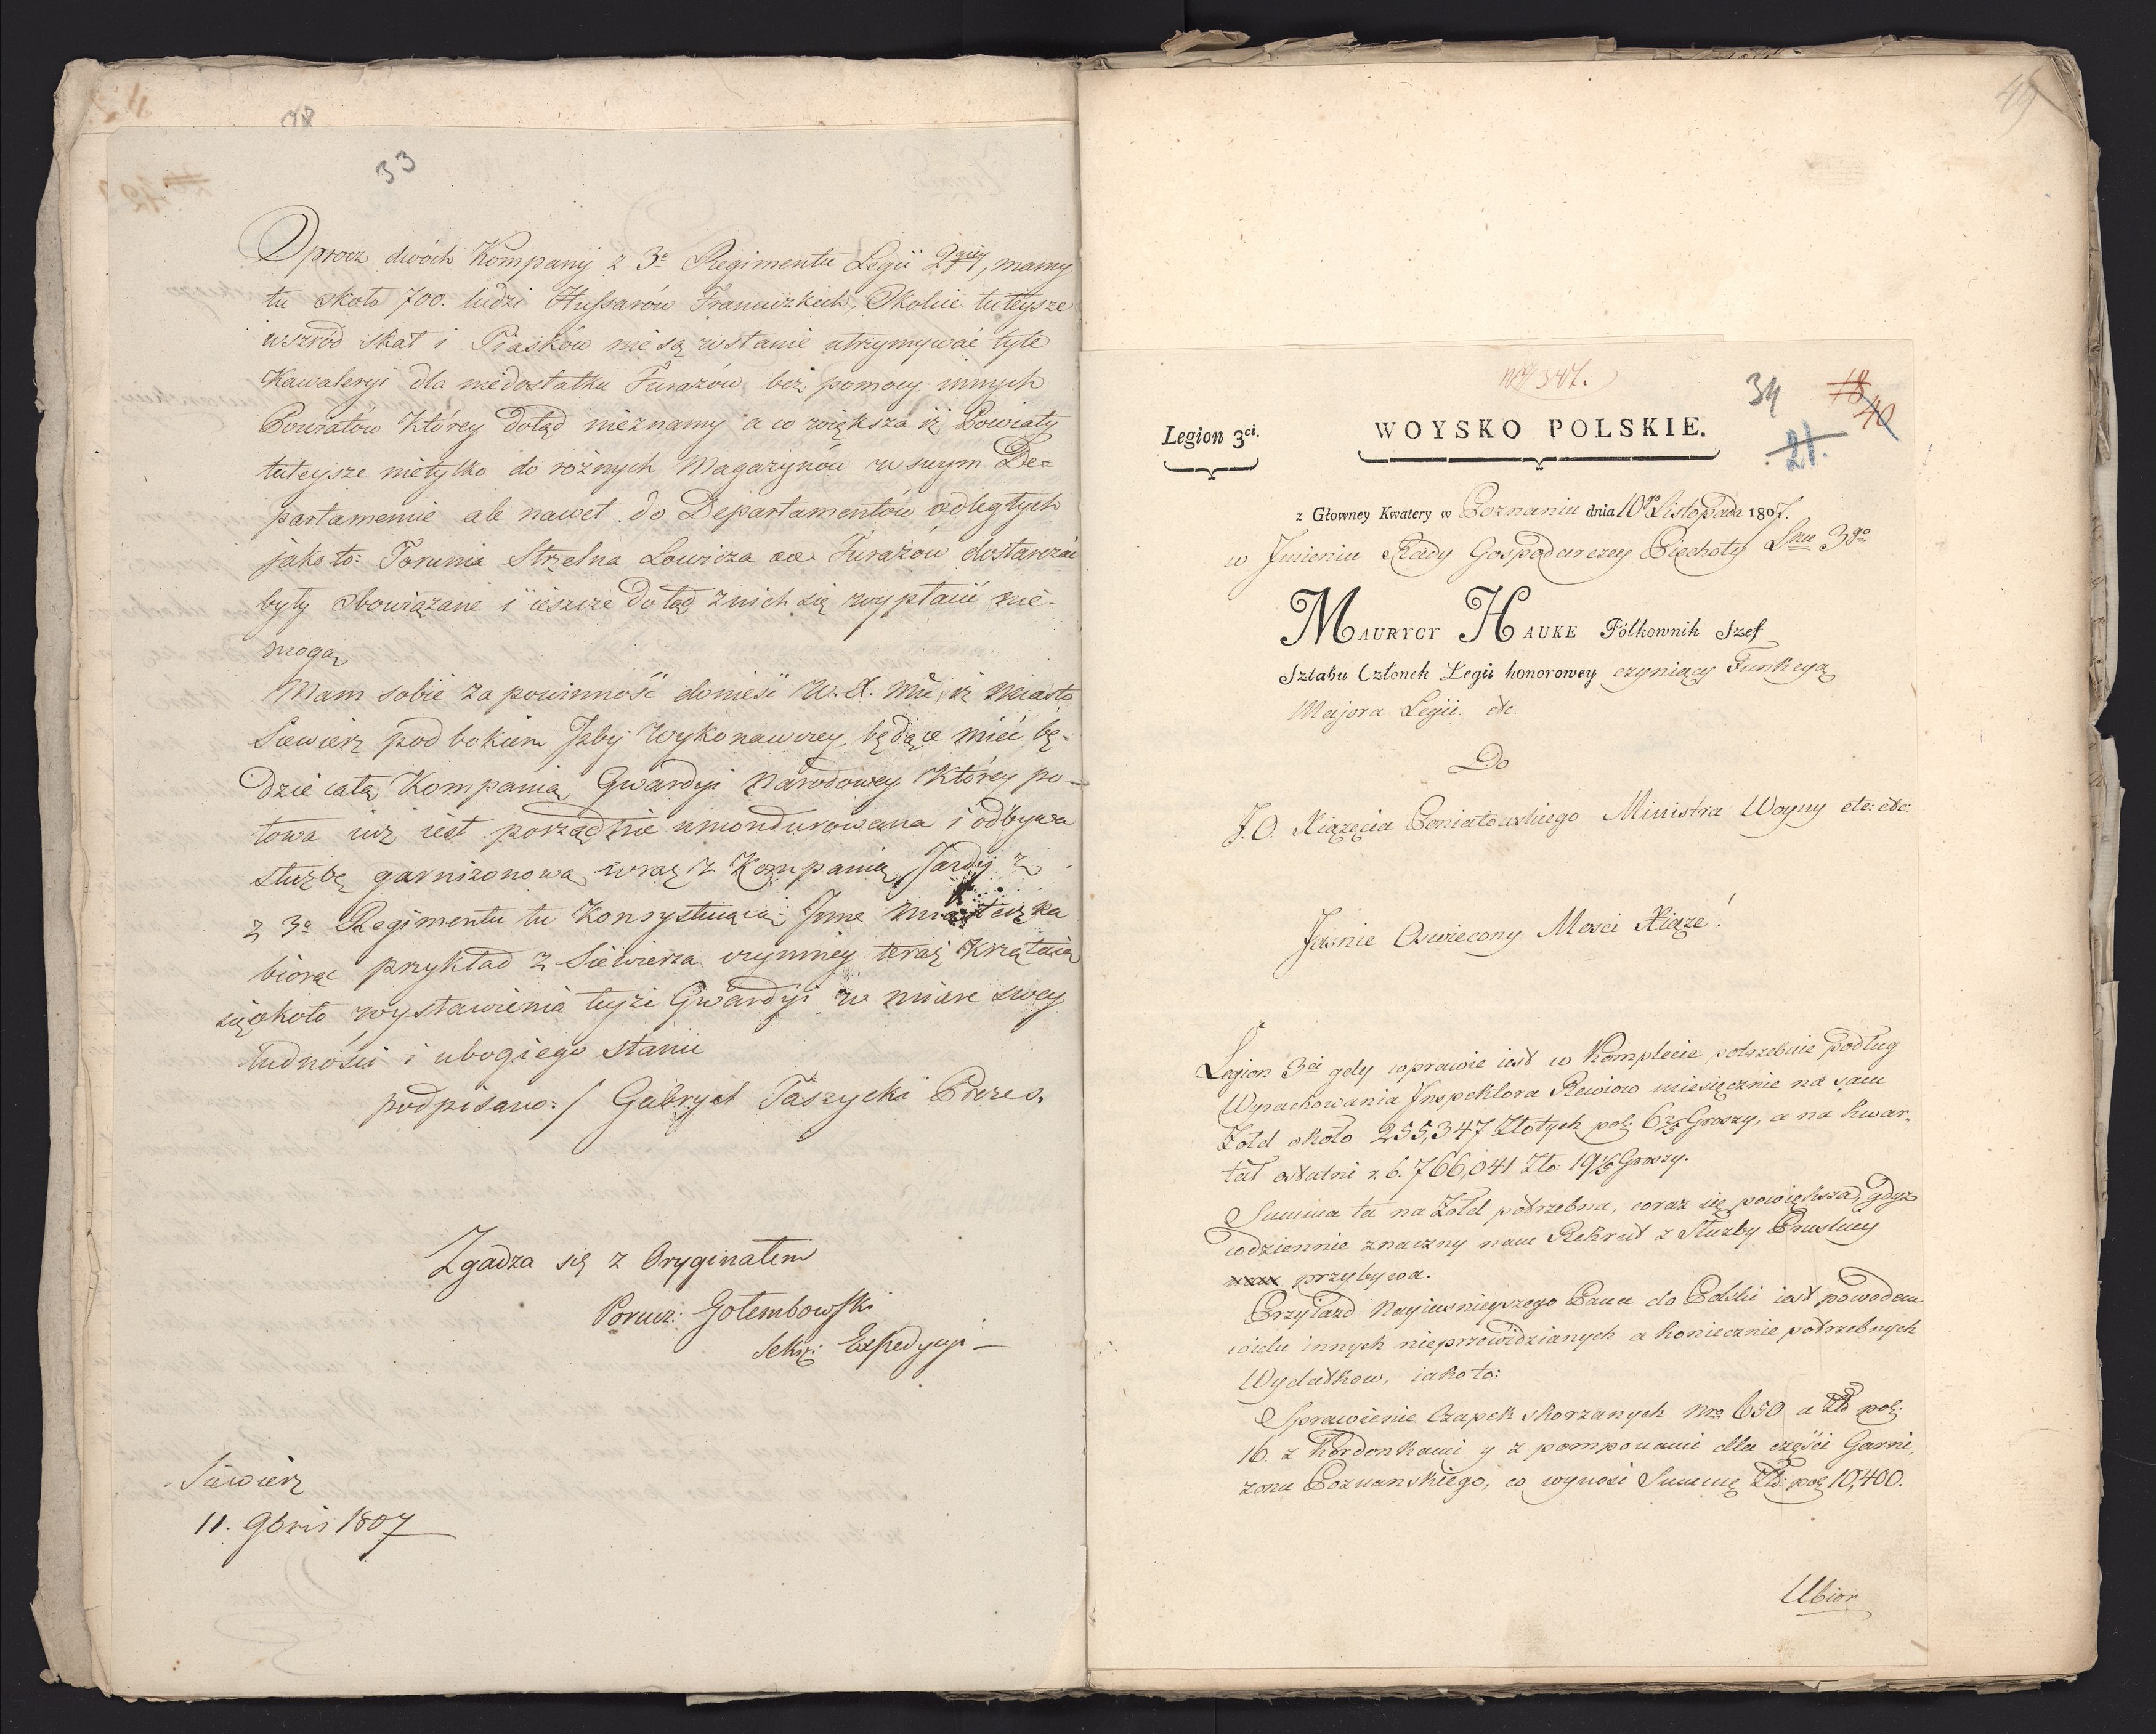 98
33
Oprocz dwóch Kompanij z 3o Regimentu Legii 2giey, mamy
tu około 700. ludzi Hussarów Francuzkich, Okolice tuteysze
wszród skał i Piasków nie są w stanie utrzymywać tyle
Kawaleryi dla niedostatku Furażów bez pomocy innych
Powiatów którey dotąd nieznamy a co większa iż Powiaty
tuteysze nietylko do rożnych Magazynów w swym De=
partamencie ale nawet do Departamentów odległych
jako to: Torunia Strzelna Łowicza Furażów dostarczać
były obowiązane i ieszcze dotąd z nich się wypłacić nie-
mogą
Mam sobie za powinność donieść W. X. Mci, iż Miasto
Siewierz pod bokiem Izby Wykonawczey będące mieć bę-
dzie całą Kompanią Gwardyi Narodowey którey po-
łowa już iest porządnie umondurowana i odbywa
służbę garnizonową wraz z Kompanią Jazdy z
z 3o Regimentu tu Konsystuiącą; Inne Miasteczka
biorąc przykład z Siewierza czynniey teraz krzątaią
się około wystawienia teyże Gwardyi w miare swey
ludności i ubogiego stanu
podpisano: / Gabryel Taszycki Prezes.
Zgadza się z Oryginałem
Porucz: Gołembowski
Sekr: Expedycyi —
Siewierz
11. 9bris 1807
49
No 347.
34
18
40
21.
Legion 3ci.
WOYSKO POLSKIE.
z Głowney Kwatery w Poznaniu dnia 10go Listopada 1807.
w Imieniu Rady Gospodarczey Piechoty Lnu 3go
MAURYCY HAUKE Półkownik Szef
Sztabu Członek Legii honorowey czyniący Funkcyą
Majora Legii etc.
Do
J. O. Xiążęcia Poniatowskiego Ministra Woyny etc: etc:
Jaśnie Oswiecony Mosci Xiąże!
Legion 3ci gdy wprawie iest w Komplecie potrzebuie podług
Wyrachowania Inspektora Rewiow miesięcznie na sam
Żołd około 255,347 Złotych pol: 6 2/5 Groszy, a na kwar-
tał ostatni r. b. 766,041 Zło: 19 1/5 Groszy.
Summa ta na Żołd potrzebna, coraz się powiększa, gdyż
codziennie znaczny nam Rekrut z Służby Pruskiey
przybywa.
Przyiazd Nayiasnieyszego Pana do Polski iest powodem
wielu innych nieprzewidzianych a koniecznie potrzebnych
Wydatkow, iako to:
Sprawienie Czapek skorzanych Nro 650 a Zł pol:
16. z Kordonkami y z pomponami dla części Garni,
zonu Poznanskiego, co wynosi Summę Zł: pol: 10,400.
Ubior